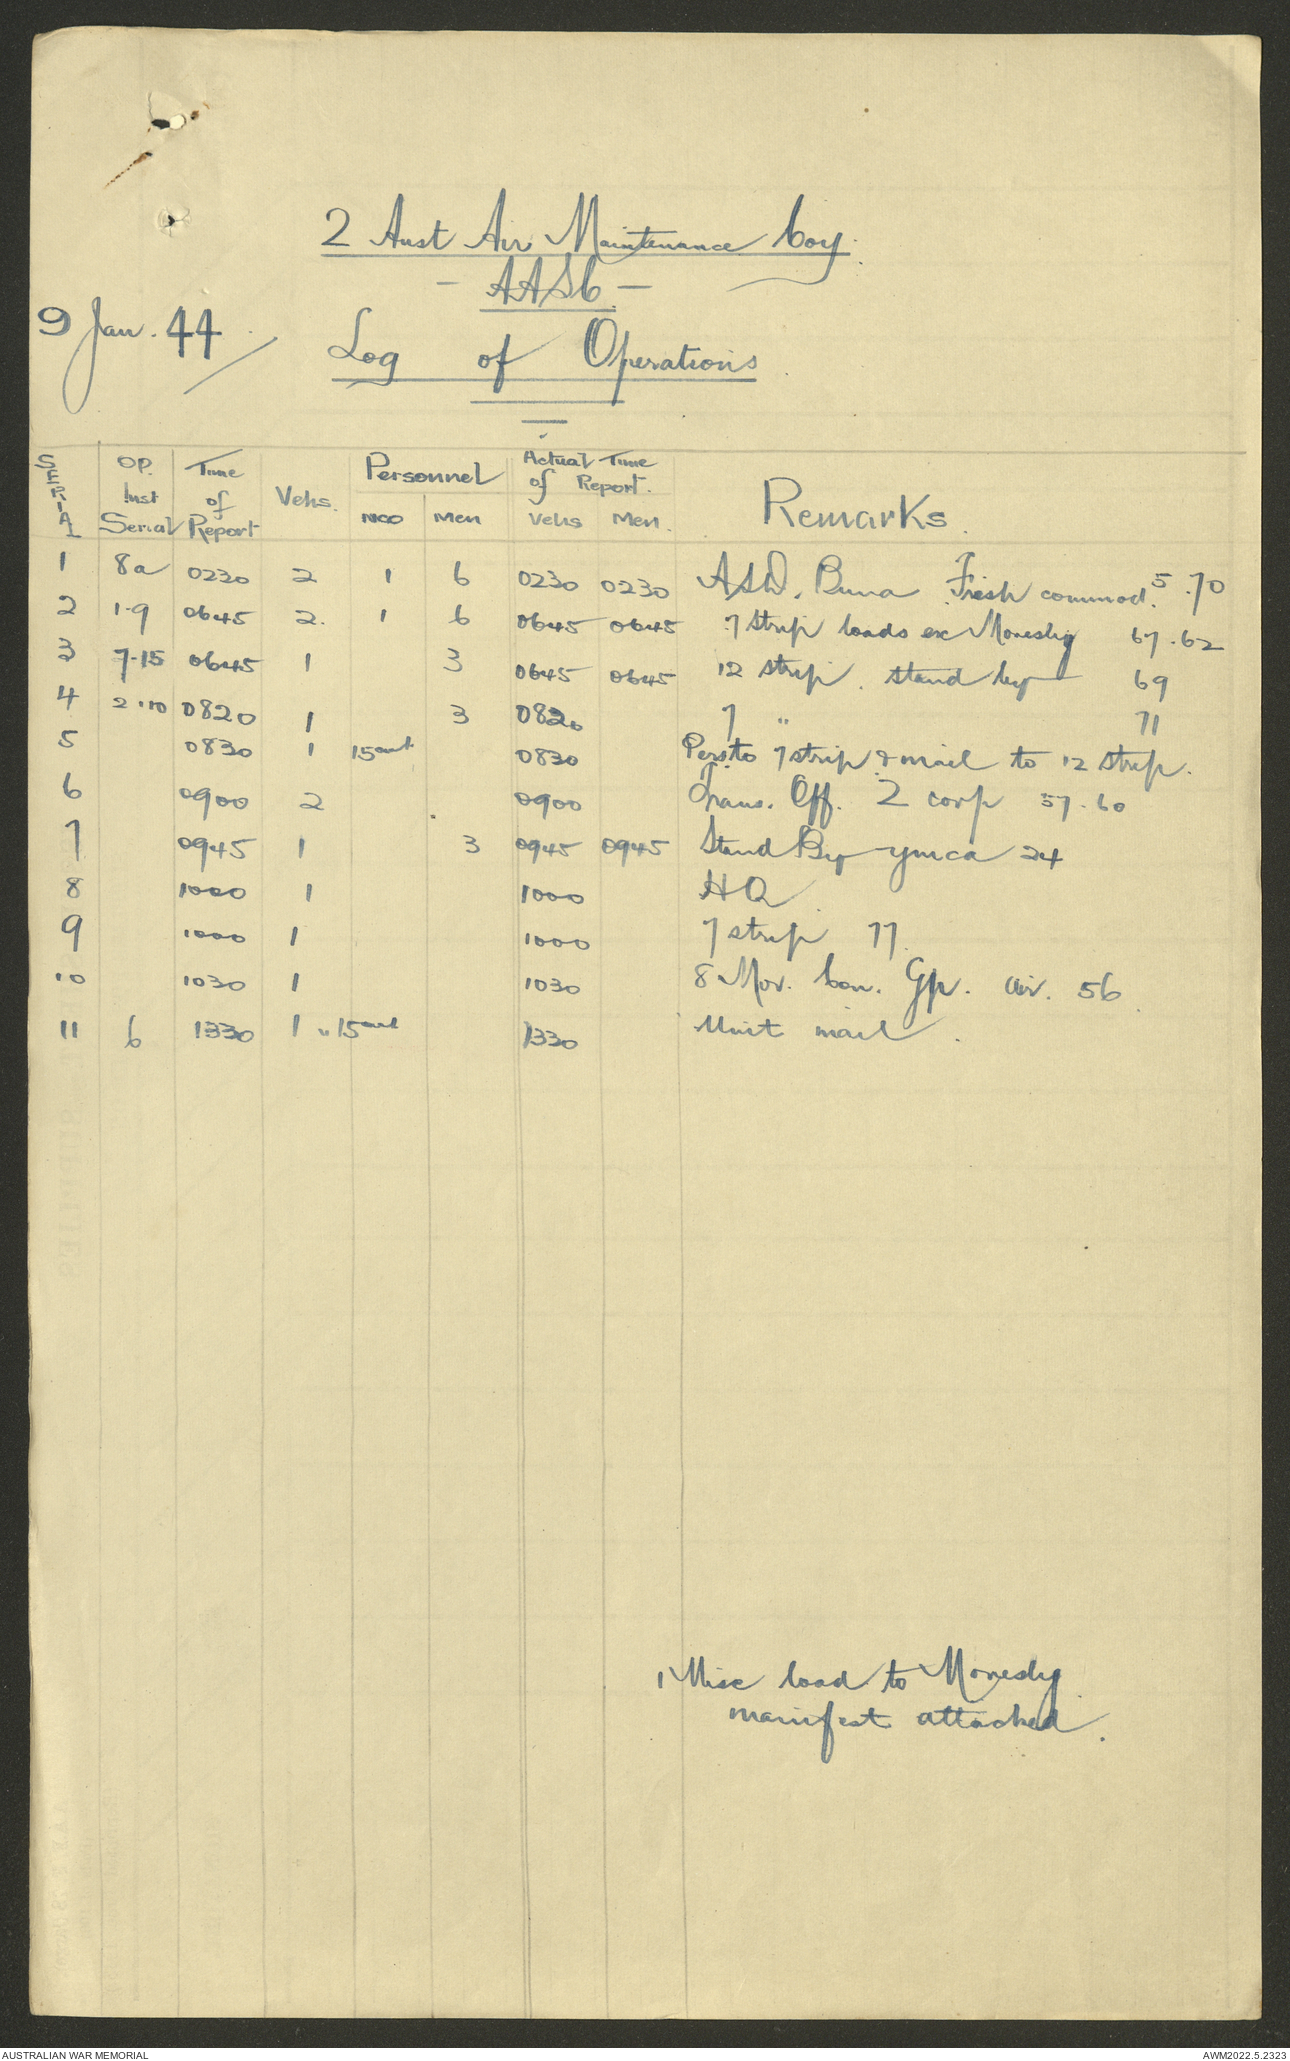 2 Aust Air Maintenance Coy.
- AASC -
9 Jan. 44
Log of Operations
SERIAL Op. Inst Serial Time of Report Vehs. Personnel NCO Men Actual Time of Report. Vehs Men. Remarks.
1 8a 0230 2 1 6 0230 0230 ASD. Buna Fresh commod. 5.70
2 1-9 0645 2. 1 6 0645 0645 7 strip loads ex Moresby 67.62
3 7-15 0645 1 3 0645 0645 12 strip. stand by 69
4 2.10 0820 1 3 0820 7 " 71
5 0830 1 15cwt 0830 Pers. to 7 strip & mail to 12 strip.
6 0900 2 0900 Trans. Off. 2 corp 57.60
7 0945 1 3 0945 0945 Stand By ymca 24
8 1000 1 1000 HQ
9 1000 1 1000 7 strip 77
10 1030 1 1030 8 Mov. Con. Gp. air. 56
11 6 1330 1 " 15cwt 1330 Unit mail.
1 Misc load to Moresby
manifest attached.
AUSTRALIAN WAR MEMORIAL
AWM2022.5.2323